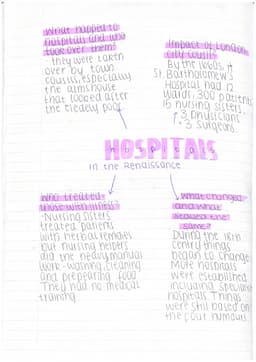 What happed to
hospitals and who
took over them?
- they were taken
over by town
councils, especially
the almshouse
that looked after
the elderly poor
Impact of London
city council
By the 1660s, #
St. Bartholomew's
Hospital had 12
wards, 300 patients
15 nursing sisters.
3 physicians
3 surgeons.
HOSPITALS
in the Renaissance
Who treated
those with illness?
- Nursing sisters
treated patients
with herbal remedies
but nursing helpers
did the heavy manual
work - washing, cleaning
and prepearing food
They had no medical
training
What changed
and what
stayed the
same?
During the 18th
centry things
began to change
More hospitals
were established
including specialist
hospitals Things
were still based on
the four humours.